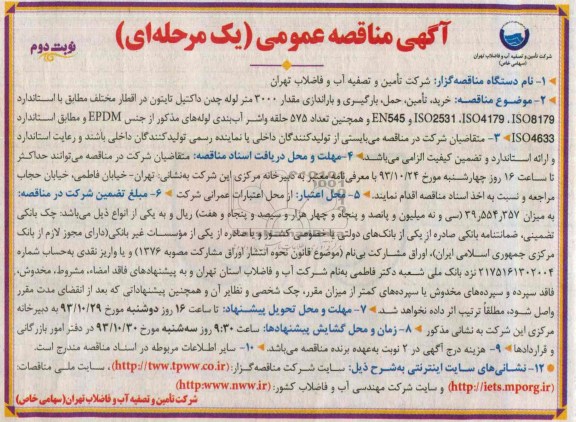 آگهی مناقصه عمومی (یک مرحله‌ای)
نوبت دوم
شرکت تأمین و تصفیه آب و فاضلاب تهران
(سهامی خاص)
۱- نام دستگاه مناقصه‌گزار: شرکت تأمین و تصفیه آب و فاضلاب تهران
۲- موضوع مناقصه: خرید، تأمین، حمل، بارگیری و باراندازی مقدار ۳۰۰۰ متر لوله چدن داکتیل تایتون در اقطار مختلف مطابق با استاندارد
ISO8179 ،ISO4179 ،ISO2531 و EN545 و همچنین تعداد ۵۷۵ حلقه واشر آب‌بندی لوله‌های مذکور از جنس EPDM و مطابق استاندارد
ISO4633 ۳- متقاضیان شرکت در مناقصه می‌بایستی از تولیدکنندگان داخلی یا نماینده رسمی تولیدکنندگان داخلی باشند و رعایت استاندارد
و ارائه استاندارد و تضمین کیفیت الزامی می‌باشد ۴- مهلت و محل دریافت اسناد مناقصه: متقاضیان شرکت در مناقصه می‌توانند حداکثر
تا ساعت ۱۶ روز چهارشنبه مورخ ۹۳/۱۰/۲۴ با معرفی‌نامه معتبر به دبیرخانه مرکزی این شرکت به‌نشانی: تهران- خیابان فاطمی، خیابان حجاب
مراجعه و نسبت به اخذ اسناد مناقصه اقدام نمایند. ۵- محل اعتبار: از محل اعتبارات عمرانی شرکت ۶- مبلغ تضمین شرکت در مناقصه:
به میزان ۳۹,۵۵۴,۳۵۷ (سی و نه میلیون و پانصد و پنجاه و چهار هزار و سیصد و پنجاه و هفت) ریال و به یکی از انواع ذیل می‌باشد: چک بانکی
تضمینی، ضمانتنامه بانکی صادره از یکی از بانک‌های دولتی یا خصوصی کشور و یا صادره از یکی از مؤسسات غیر بانکی (دارای مجوز لازم از بانک
مرکزی جمهوری اسلامی ایران)، اوراق مشارکت بی‌نام (موضوع قانون نحوه انتشار اوراق مشارکت مصوبه ۱۳۷۶) و یا واریز نقدی به‌حساب شماره
۲۱۷۵۱۶۱۳۰۲۰۰۴ نزد بانک ملی شعبه دکتر فاطمی به‌نام شرکت آب و فاضلاب استان تهران و به پیشنهادهای فاقد امضاء، مشروط، مخدوش،
فاقد سپرده و سپرده‌های مخدوش یا سپرده‌های کمتر از میزان مقرر، چک شخصی و نظایر آن و همچنین پیشنهاداتی که بعد از انقضای مدت مقرر
واصل شود، مطلقاً ترتیب اثر داده نخواهد شد. ۷- مهلت و محل تحویل پیشنهاد: تا ساعت ۱۶ روز دوشنبه مورخ ۹۳/۱۰/۲۹ به دبیرخانه
مرکزی این شرکت به نشانی مذکور ۸- زمان و محل گشایش پیشنهادها: ساعت ۹:۳۰ روز سه‌شنبه مورخ ۹۳/۱۰/۳۰ در دفتر امور بازرگانی
و قراردادها ۹- هزینه درج آگهی در ۲ نوبت به‌عهده برنده مناقصه می‌باشد. ۱۰- سایر اطلاعات مربوطه در اسناد مناقصه مندرج است.
۱۲- نشانی‌های سایت اینترنتی به‌شرح ذیل: سایت شرکت مناقصه‌گزار: (http://tww.tpww.co.ir)، سایت ملی مناقصات:
(http://iets.mporg.ir) و سایت شرکت مهندسی آب و فاضلاب کشور: (http:www.nww.ir)
شرکت تأمین و تصفیه آب و فاضلاب تهران (سهامی خاص)